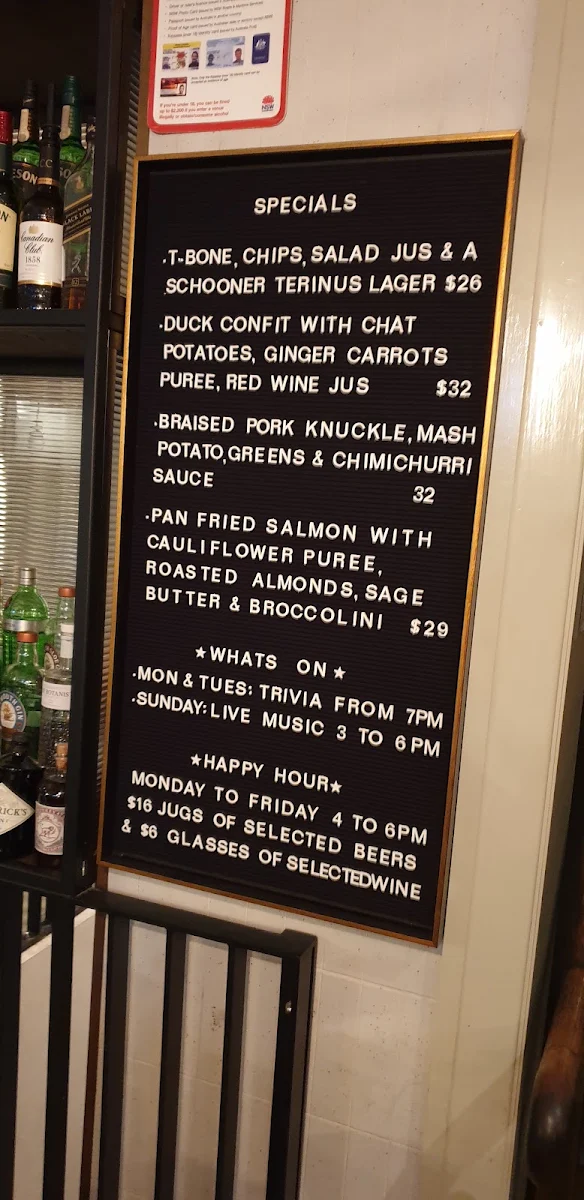 If you're under 18, you can be fined
NSW
SPECIALS
·T-BONE, CHIPS, SALAD JUS & A
SCHOONER TERINUS LAGER $26
·DUCK CONFIT WITH CHAT
POTATOES, GINGER CARROTS
PUREE, RED WINE JUS $32
·BRAISED PORK KNUCKLE, MASH
POTATO, GREENS & CHIMICHURRI
SAUCE 32
·PAN FRIED SALMON WITH
CAULIFLOWER PUREE,
ROASTED ALMONDS, SAGE
BUTTER & BROCCOLINI $29
★WHATS ON★
·MON & TUES: TRIVIA FROM 7PM
·SUNDAY: LIVE MUSIC 3 TO 6PM
★HAPPY HOUR★
MONDAY TO FRIDAY 4 TO 6PM
$16 JUGS OF SELECTED BEERS
& $6 GLASSES OF SELECTEDWINE
Canadian
Club
1858
BLACK LABEL